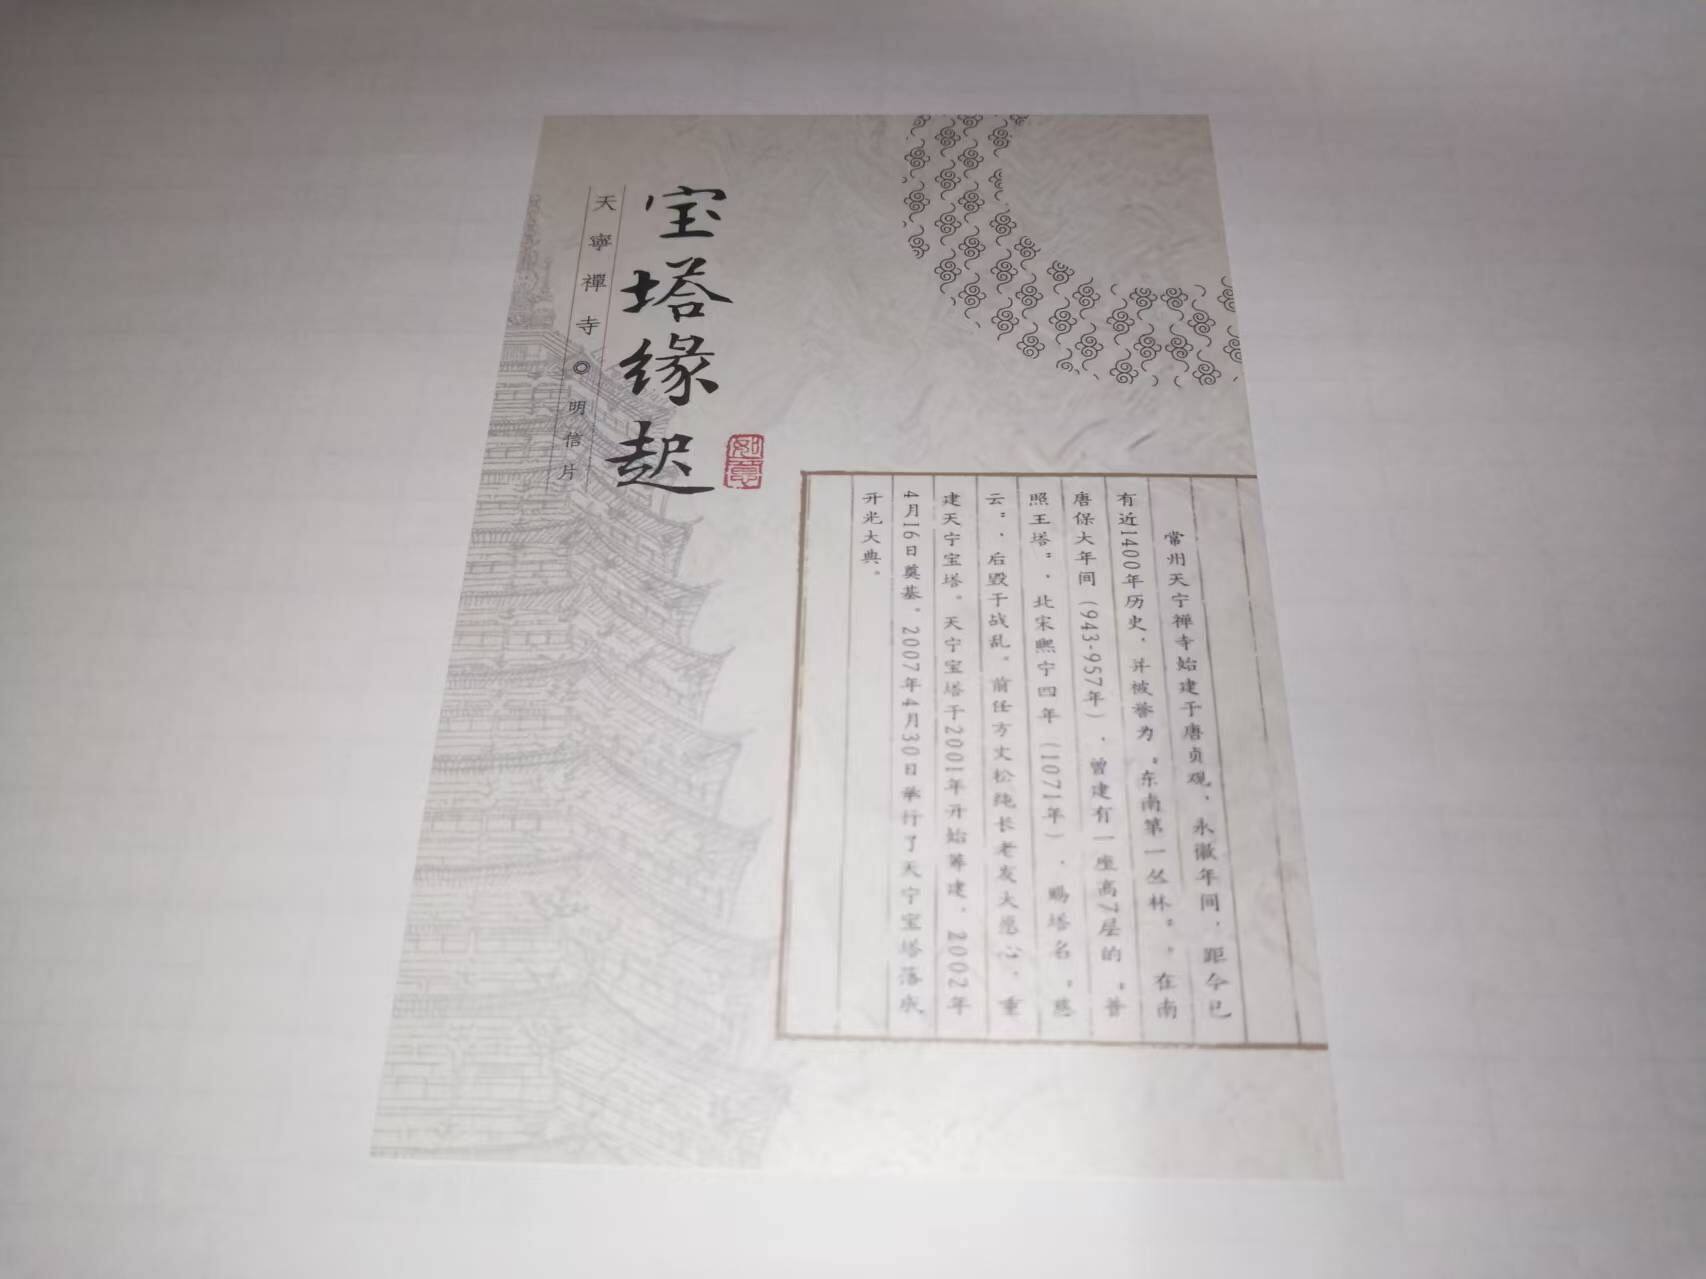 宝塔缘起
天寧禪寺◎明信片
如意
常州天宁禅寺始建于唐贞观、永徽年间，距今已
有近1400年历史，并被誉为“东南第一丛林”，在南
唐保大年间（943-957年），曾建有一座高7层的“普
照王塔”，北宋熙宁四年（1071年），赐塔名“慈
云”，后毁于战乱。前任方丈松纯长老发大愿心，重
建天宁宝塔。天宁宝塔于2001年开始筹建，2002年
4月16日奠基。2007年4月30日举行了天宁宝塔落成
开光大典。